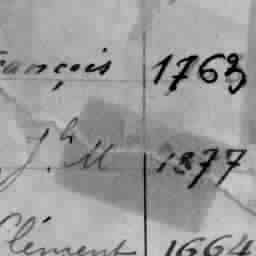 François 1763
Jh. M 1877
Clément 1664